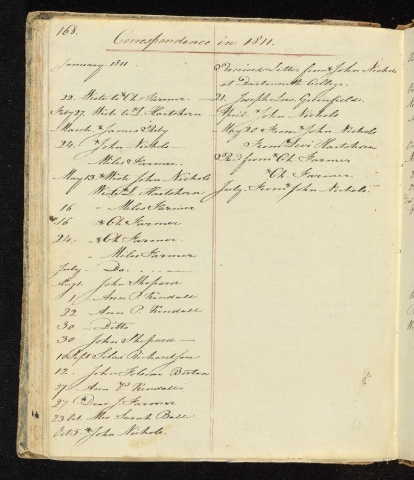 168.
Correspondence in 1811.
January 1811
22. Wrote to Ch Farmer
Feby 27 Writ to L Hartshorn
March " James
24 " John Nichols
Miles Farmer
May 13 Writ John Nichols
Write L Hartshorn
16 " Miles Farmer
16 Ch Farmer
24 " Ch Farmer
" Miles Farmer
July. Do.
Sept. John Shepard
1 Ann P Kendall
22 Ann P. Kendall
30 Ditto
30 John Shepard
10 Sept Silas Richardson
12. John Folsom
27. Ann P Kendall
27 J. Farmer
23 Oct. Mrs Sarah Ball
Oct 5 John Nichols
Received Letter from John Nichols
at Dartmouth College
21. Joseph Greenfield
April John Nichols
May 20 From John Nichols
From Levi Hartshorn
from Ch Farmer
Ch Farmer
July. From John Nichols.